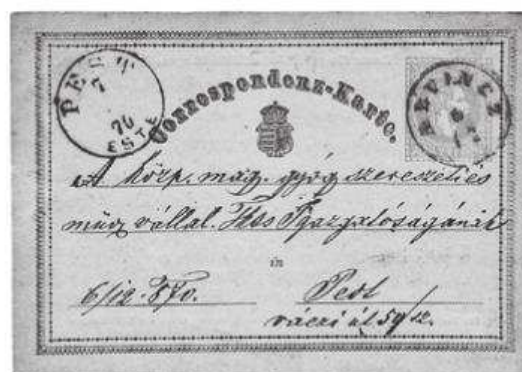 PEST
7
70
ESTE
Correspondenz-Karte.
REVINCZ
A közp. mag. gyóg szerészeti és
műv vállal. Tkos Igazgatóságának
in
6/12 870. Pest
váczi út 59 sz.